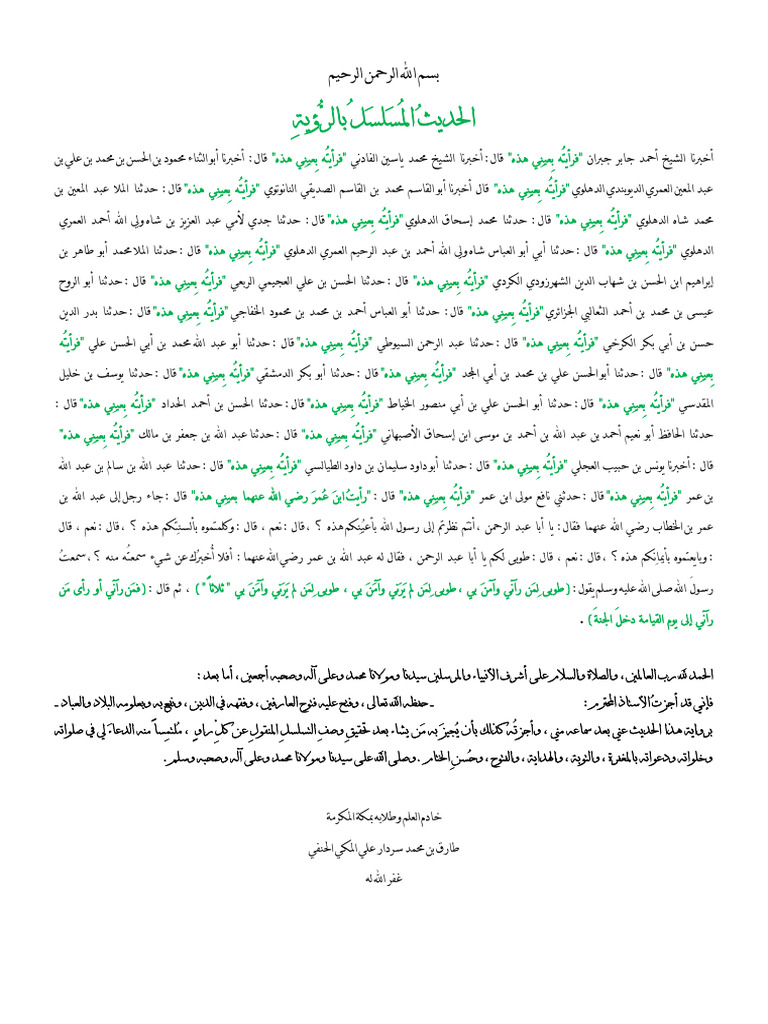 بسم الله الرحمن الرحيم
الحديثُ المُسَلسَلُ بالرُّؤيةِ
أخبرنا الشيخ أحمد جابر جبران "فرأيتُه بِعيني هذه" قال : أخبرنا الشيخ محمد ياسين الفاداني "فرأيتُه بِعيني هذه" قال : أخبرنا أبو الثناء محمود بن الحسن بن محمد بن علي بن
عبد المعين العمري الديوبندي الدهلوي "فرأيتُه بِعيني هذه" قال أخبرنا أبو القاسم محمد بن القاسم الصديقي النانوتوي "فرأيتُه بِعيني هذه" قال : حدثنا الملا عبد المعين بن
محمد شاه الدهلوي "فرأيتُه بِعيني هذه" قال : حدثنا محمد إسحاق الدهلوي "فرأيتُه بِعيني هذه" قال : حدثنا جدي لأمي عبد العزيز بن شاه ولي الله أحمد العمري
الدهلوي "فرأيتُه بِعيني هذه" قال : حدثنا أبي أبو العباس شاه ولي الله أحمد بن عبد الرحيم العمري الدهلوي "فرأيتُه بِعيني هذه" قال : حدثنا الملا محمد أبو طاهر بن
إبراهيم ابن الحسن بن شهاب الدين الشهرزودي الكردي "فرأيتُه بِعيني هذه" قال : حدثنا الحسن بن علي العجيمي الربعي "فرأيتُه بِعيني هذه" قال : حدثنا أبو الروح
عيسى بن محمد بن أحمد الثعالبي الجزائري "فرأيتُه بِعيني هذه" قال : حدثنا أبو العباس أحمد بن محمد بن محمود الخفاجي "فرأيتُه بِعيني هذه" قال : حدثنا بدر الدين
حسن بن أبي بكر الكرخي "فرأيتُه بِعيني هذه" قال : حدثنا عبد الرحمن السيوطي "فرأيتُه بِعيني هذه" قال : حدثنا أبو عبد الله محمد بن أبي الحسن علي "فرأيتُه
بِعيني هذه" قال : حدثنا أبو الحسن علي بن محمد بن أبي المجد "فرأيتُه بِعيني هذه" قال : حدثنا أبو بكر الدمشقي "فرأيتُه بِعيني هذه" قال : حدثنا يوسف بن خليل
المقدسي "فرأيتُه بِعيني هذه" قال : حدثنا أبو الحسن علي بن أبي منصور الخياط "فرأيتُه بِعيني هذه" قال : حدثنا الحسن بن أحمد الحداد "فرأيتُه بِعيني هذه" قال :
حدثنا الحافظ أبو نعيم أحمد بن عبد الله بن أحمد بن موسى ابن إسحاق الأصبهاني "فرأيتُه بِعيني هذه" قال : حدثنا عبد الله بن جعفر بن مالك "فرأيتُه بِعيني هذه"
قال : أخبرنا يونس بن حبيب العجلي "فرأيتُه بِعيني هذه" قال : حدثنا أبو داود سليمان بن داود الطيالسي "فرأيتُه بِعيني هذه" قال : حدثنا عبد الله بن سالم بن عبد الله
بن عمر "فرأيتُه بِعيني هذه" قال : حدثني نافع مولى ابن عمر "فرأيتُه بِعيني هذه" قال : "رأيتُ ابنَ عُمرَ رضي الله عنهما بعيني هذه" قال : جاء رجل إلى عبد الله بن
عمر بن الخطاب رضي الله عنهما فقال : يا أبا عبد الرحمن ، أنتم نظرتم إلى رسول الله بأعيُنِكم هذه ؟ ، قال : نعم ، قال : وكلمتموه بألسنتِكم هذه ؟ ، قال : نعم ، قال
: وبايعتموه بأيمانِكم هذه ؟ ، قال : نعم ، قال : طوبى لكم يا أبا عبد الرحمن ، فقال له عبد الله بن عمر رضي الله عنهما : أفلا أُخبِرُك عن شيء سمعتُه منه ؟ ، سمعتُ
رسولَ الله صلى الله عليه وسلم يقول : ( طوبى لِمَن رآني وآمَنَ بي ، طوبى لِمَن لم يَرَني وآمَنَ بي ، طوبى لِمَن لم يَرَني وآمَنَ بي " ثلاثاً " ) ، ثم قال : ( فمَن رآني أو رأى مَن
رآني إلى يوم القيامة دخلَ الجنةَ ) .
الحمد لله رب العالمين ، والصلاة والسلام على أشرف الأنبياء والمرسلين سيدنا ومولانا محمد وعلى آله وصحبه أجمعين ، أما بعد :
فإنني قد أجزتُ الأستاذ المحترم : ـ حفظه الله تعالى ، وفتح عليه فتوح العارفين ، وفقهه في الدين ، ونفع به وبعلومه البلاد والعباد ـ
برواية هذا الحديث عني بعد سماعه مني ، وأجزتُه كذلك بأن يُجيزَ به مَن يشاء بعد تحقيقِ وصفِ التسلسلِ المنقولِ عن كلِّ راوٍ ، مُلتمِساً منه الدعاءَ لي في صلواته
وخلواته ودعواته بالمغفرة ، والتوبة ، والهداية ، والفتوح ، وحُسنِ الختام . وصلى الله على سيدنا ومولانا محمد وعلى آله وصحبه وسلم .
خادم العلم وطلابه بمكة المكرمة
طارق بن محمد سردار علي المكي الحنفي
غفر الله له